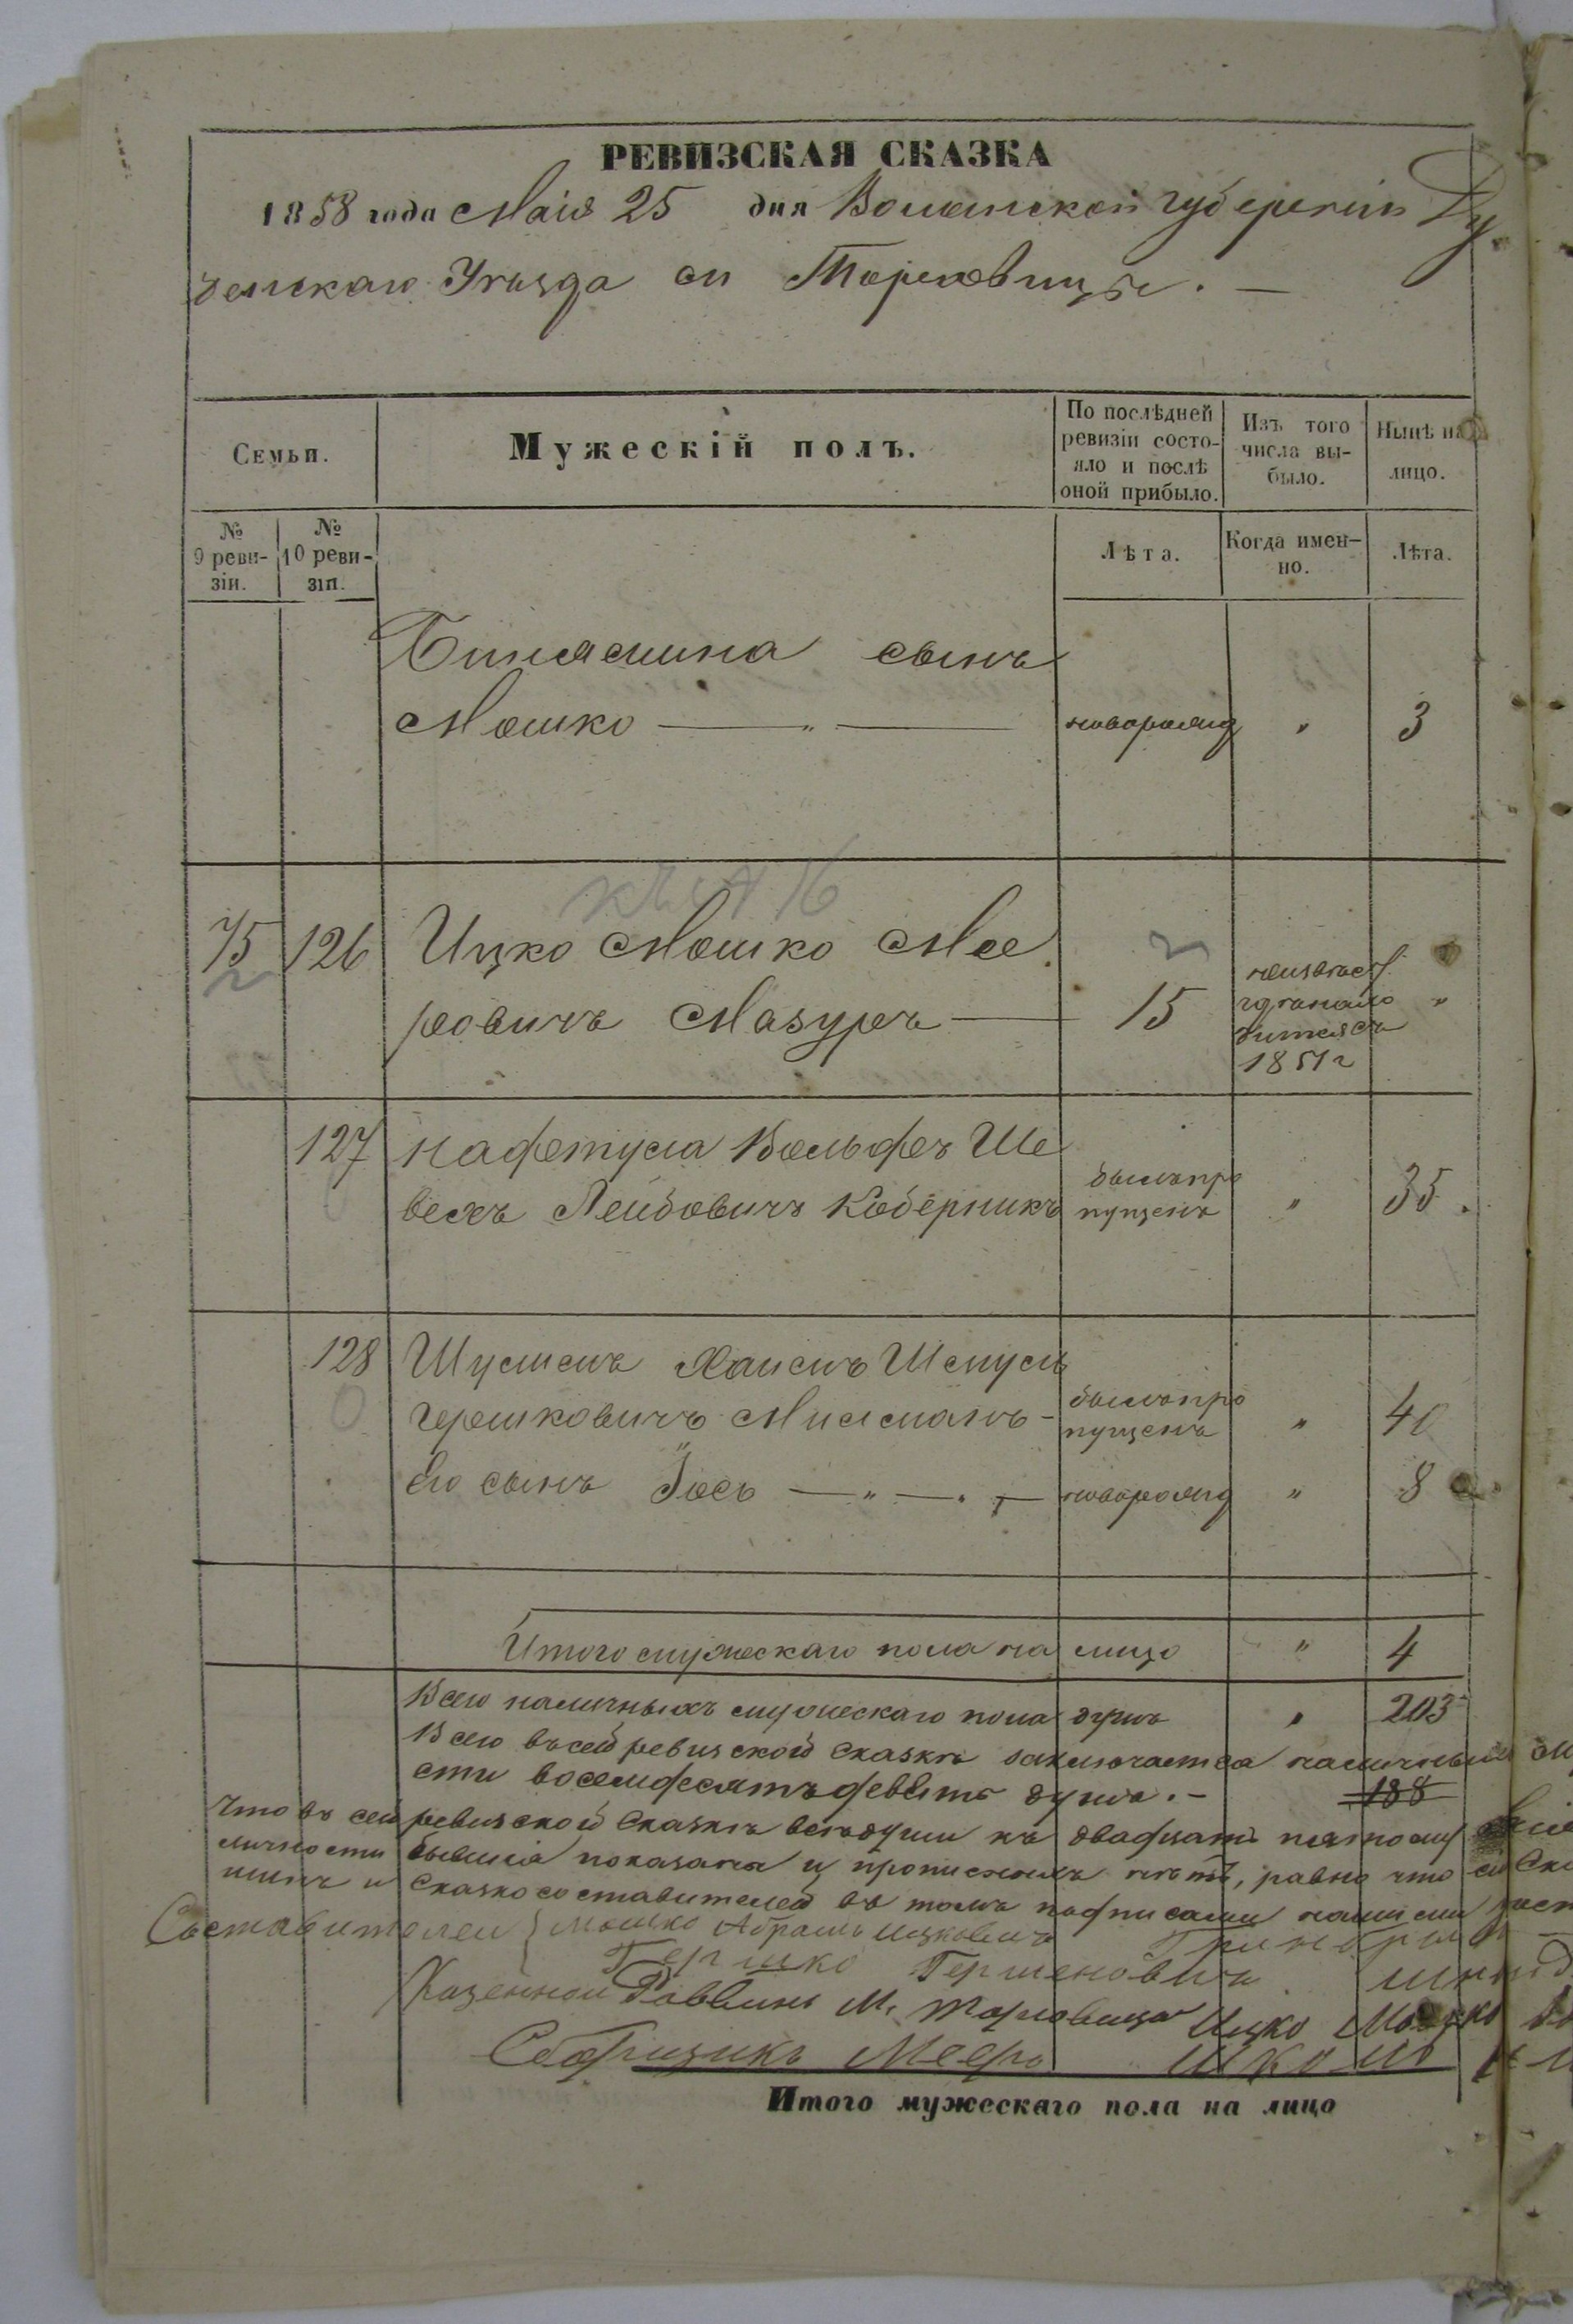 РЕВИЗСКАЯ СКАЗКА
1858 года Маія 25 дня Волынской губерніи Ду
бенскаго Уѣзда м Торговицы. —
Семьи.
Мужескій полъ.
По послѣдней ревизіи состо-
яло и послѣ оной прибыло.
Изъ того числа вы-
было.
Нынѣ на лицо.
№ 9 реви-
зіи.
№ 10 реви-
зіи.
Лѣта.
Когда имен-
но.
Лѣта.
Бинямина сынъ
Мошко — " — новорожд " 3
75 126 Ицко Мошко Мее
ровичъ Мазуръ — 15
1851 г "
127 Нафтула Вольфъ Ше
вехъ Лейбовичъ Коберникъ
былъ про
пущенъ " 35.
128 Шулимъ Хаимъ Шмуль
Гершковичъ Милманъ -
былъ про
пущенъ " 40
Его сынъ Іось — " — новорожд " 8
Итого мужескаго пола на лицо " 4
Всего наличныхъ мужескаго пола душъ " 203
Всего въ сей ревизской сказкѣ заключается наличныхъ
сти восемдесятъ девять душъ. — 188
Что въ сей ревизской сказкѣ всѣ души къ двадцать пятому
личности бывшіе показаны и прописныхъ нѣтъ, равно что
и Сказкосоставителей въ томъ подписами нашими
Составителей { Мошко Абрамъ Ицковичъ
Гершко Гершеновичъ
Казенной Раввинъ М. Торговица Ицко Мошко
Сборщикъ Мееръ
Итого мужескаго пола на лицо